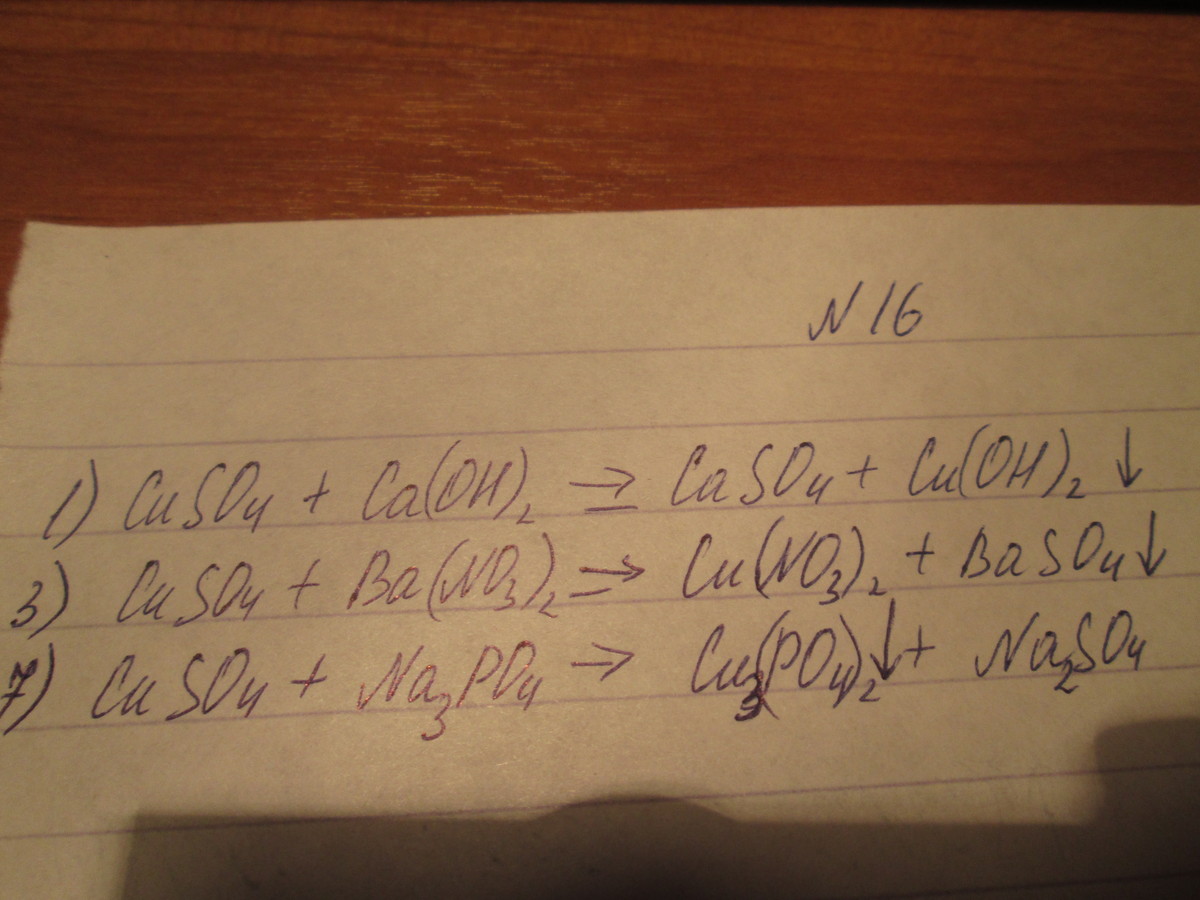 N 16
1) CuSO₄ + Ca(OH)₂ ⇒ CaSO₄ + Cu(OH)₂ ↓
3) CuSO₄ + Ba(NO₃)₂ ⇒ Cu(NO₃)₂ + BaSO₄↓
7) CuSO₄ + Na₃PO₄ → Cu₃(PO₄)₂↓ + Na₂SO₄